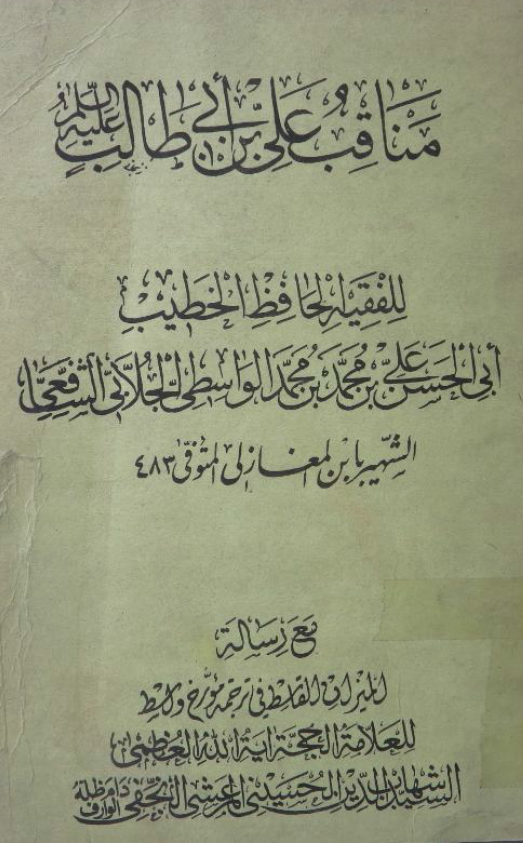 مَنَاقِبُ عَلِيِّ بْنِ أَبِي طَالِبٍ عَلَيْهِ السَّلَامُ
لِلْفَقِيهِ الْحَافِظِ الْخَطِيبِ
أَبِي الْحَسَنِ عَلِيِّ بْنِ مُحَمَّدِ بْنِ مُحَمَّدٍ الْوَاسِطِيِّ الْجُلَّابِيِّ الشَّافِعِيِّ
الشهير بابن المغازلى المتوفى ٤٨٣
مَعَ رِسَالَةِ
الميزان القاسط في ترجمة مؤرخ واسط
للعلامة الحجة آية الله العظمى
السيد شهاب الدين الحسيني المرعشي النجفي دام ظله الوارف